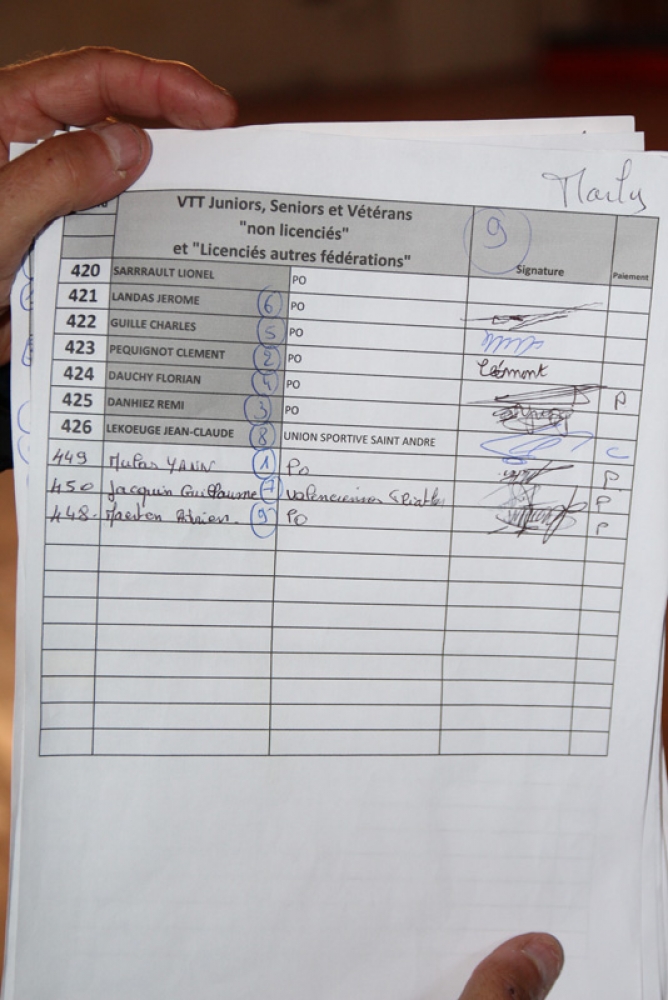 Marly
VTT Juniors, Seniors et Vétérans
"non licenciés"
et "Licenciés autres fédérations"
9
Signature
Paiement
420 SARRRAULT LIONEL PO
421 LANDAS JEROME 6 PO
422 GUILLE CHARLES 5 PO
423 PEQUIGNOT CLEMENT 2 PO Clément
424 DAUCHY FLORIAN 4 PO P
425 DANHIEZ REMI 3 PO
426 LEKOEUGE JEAN-CLAUDE 8 UNION SPORTIVE SAINT ANDRE C
449 YANN 1 PO P
450 Jacquin Guillaume 7 Valenciennes P
448 Adrien 9 PO P